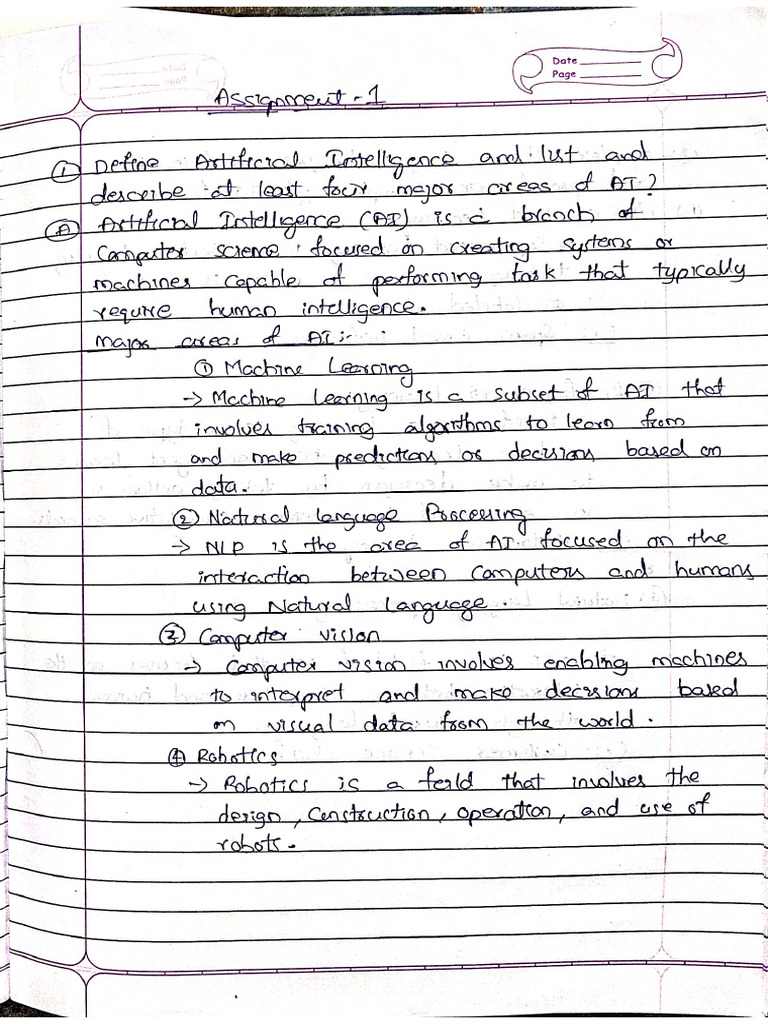 Date
Page
Assignment - 1
① Define Artificial Intelligence and list and
describe at least four major areas of AI?
Ⓐ Artificial Intelligence (AI) is a branch of
Computer science focused on creating systems or
machines capable of performing task that typically
require human intelligence.
major areas of AI:-
① Machine Learning
→ Machine learning is a subset of AI that
involves training algorithms to learn from
and make predictions or decisions based on
data.
② Natural language Processing
→ NLP is the area of AI focused on the
interaction between Computers and humans
using Natural Language.
③ Computer vision
→ Computer vision involves enabling machines
to interpret and make decisions based
on visual data from the world.
④ Robotics
→ Robotics is a feild that involves the
design, Construction, operation, and use of
robots.